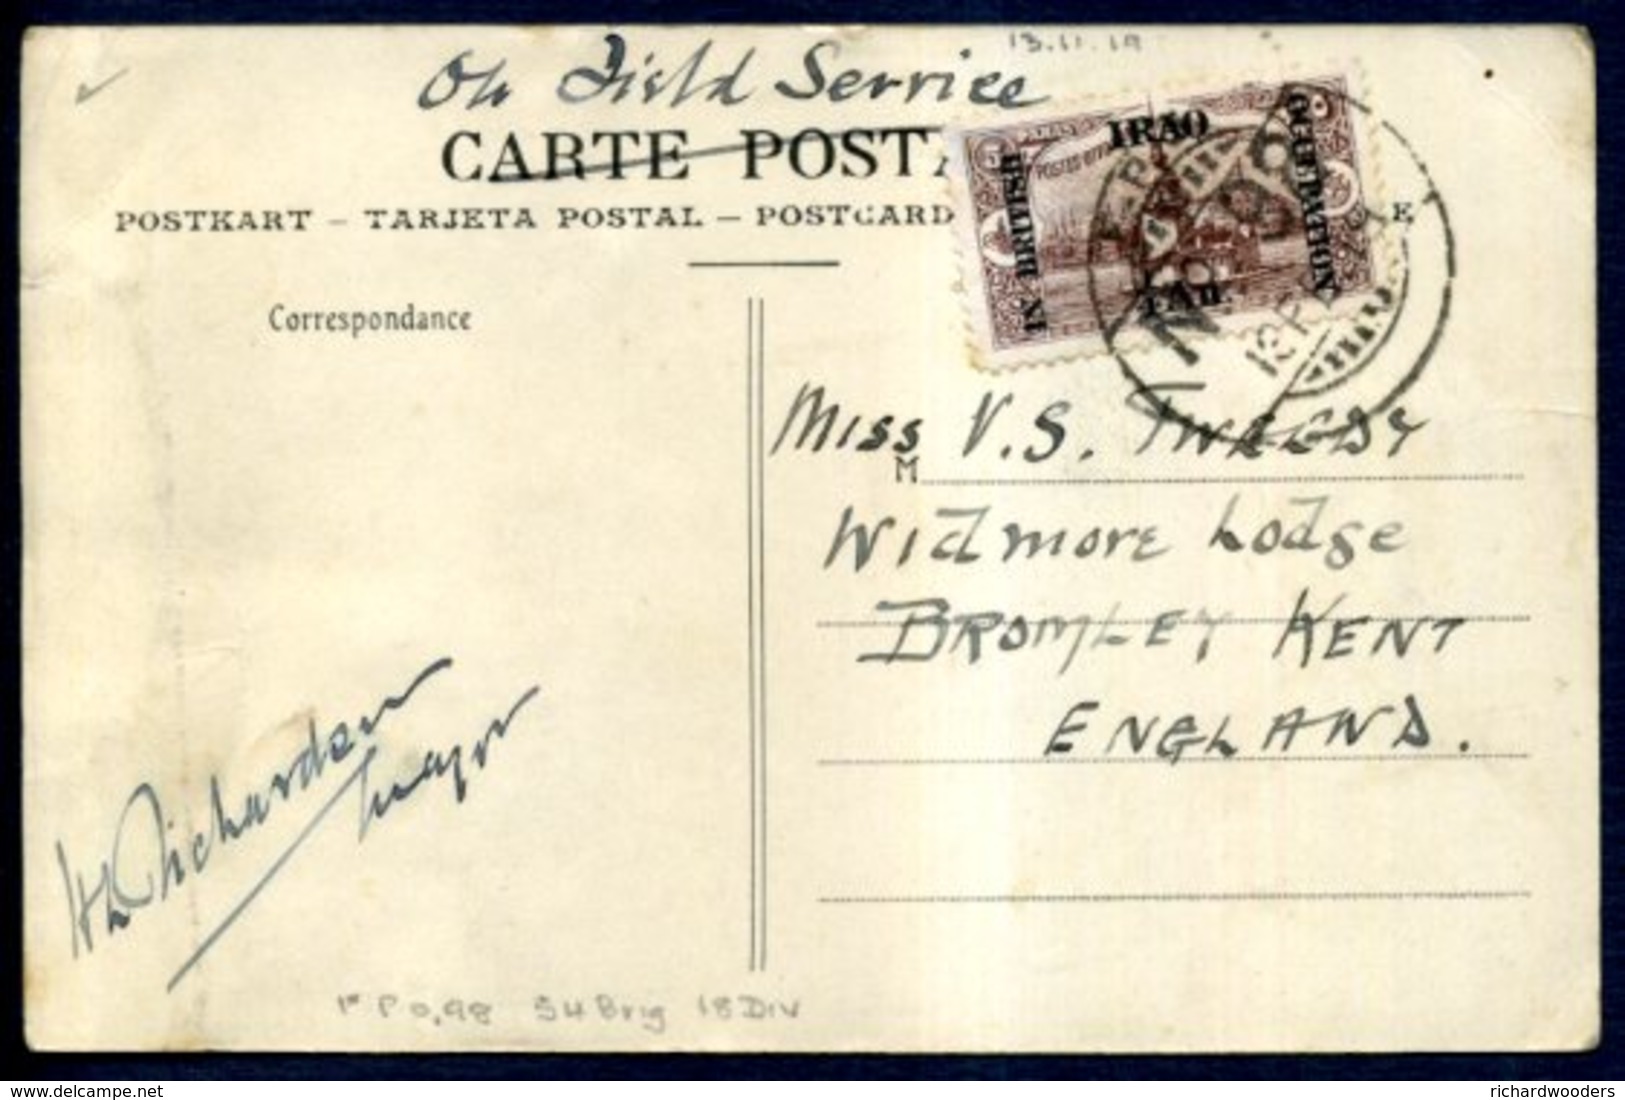 13.11.19
On Field Service
CARTE POSTA
POSTKART – TARJETA POSTAL – POSTCARD
E
IRAQ
IN BRITISH
OCCUPATION
1 An.
POSTES
F.P.O.
No 98
Correspondance
Miss V.S. TWEEDY
M
Widmore Lodge
BROMLEY KENT
ENGLAND.
Richardson
Major
F P O, 98 54 Brig 18 Div
delcampe.net
richardwooders